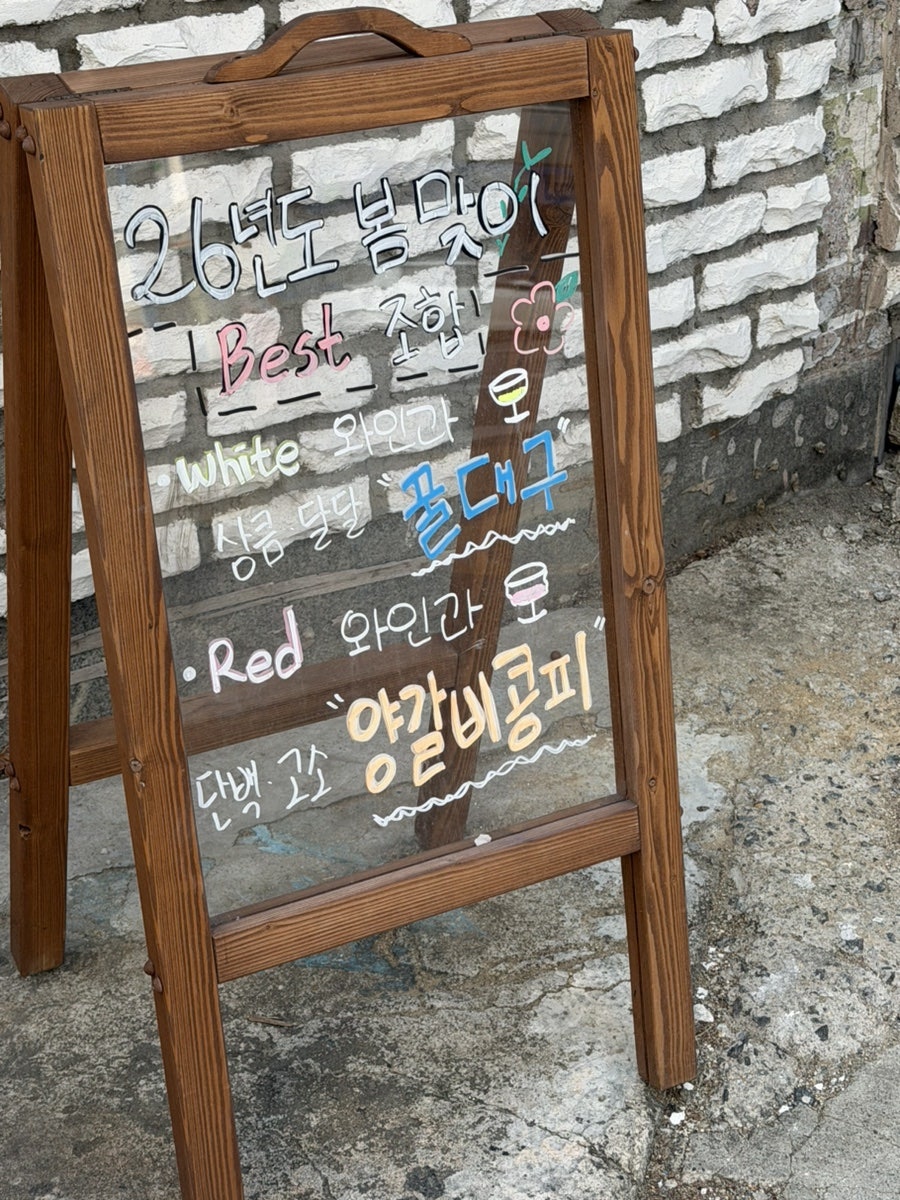 26년도 봄맞이
Best 조합
· White 와인과
상콤·달달 "꿀대구"
· Red 와인과
담백·고소 "양갈비콩피"